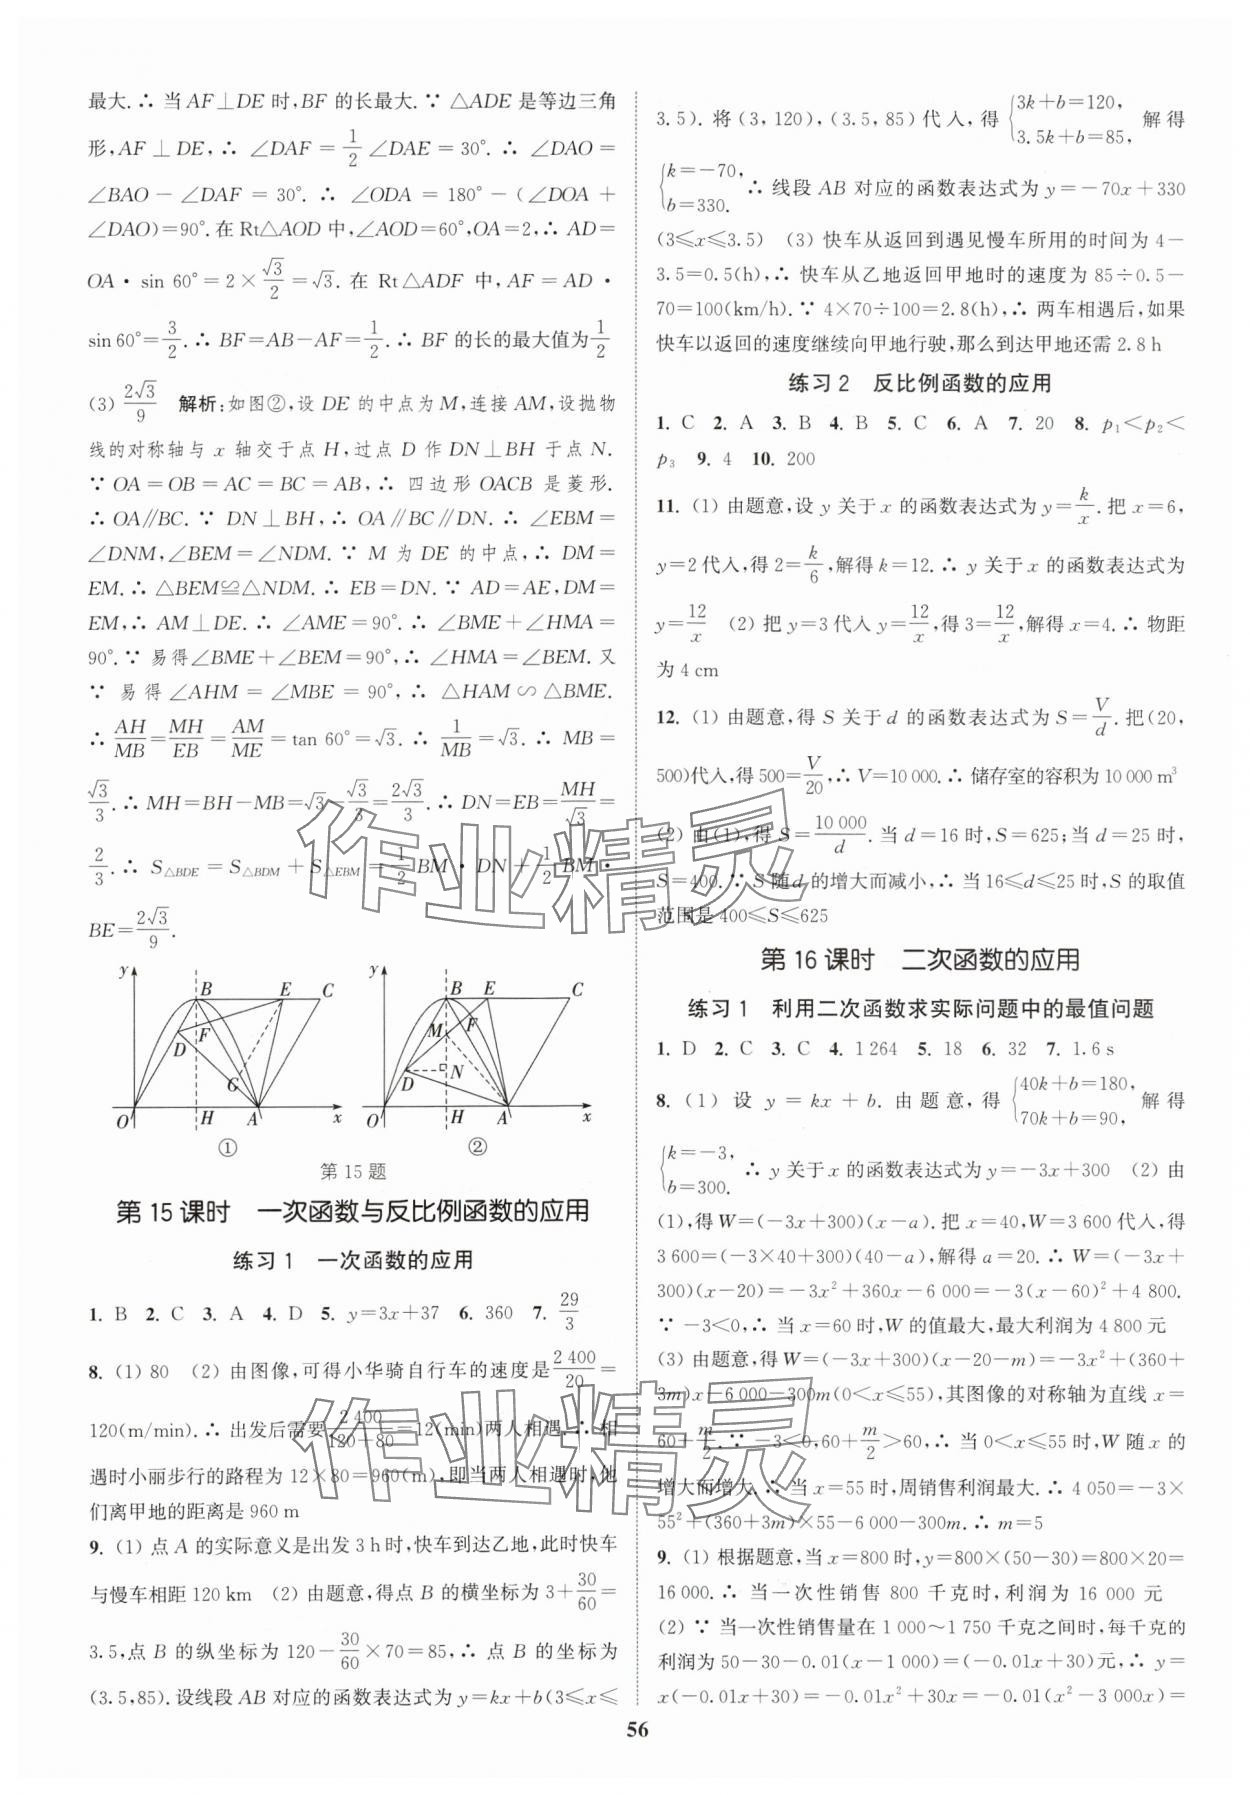 最大.∴ 当 AF⊥DE 时,BF 的长最大.∵ △ADE 是等边三角
形,AF⊥DE,∴ ∠DAF=1/2∠DAE=30°.∴ ∠DAO=
∠BAO-∠DAF=30°.∴ ∠ODA=180°-(∠DOA+
∠DAO)=90°.在 Rt△AOD 中,∠AOD=60°,OA=2,∴ AD=
OA·sin 60°=2×√3/2=√3.在 Rt△ADF 中,AF=AD·
sin60°=3/2.∴ BF=AB-AF=1/2.∴ BF 的长的最大值为1/2
(3) 2√3/9 解析:如图②,设 DE 的中点为 M,连接 AM,设抛物
线的对称轴与 x 轴交于点 H,过点 D 作 DN⊥BH 于点 N.
∵ OA=OB=AC=BC=AB,∴ 四边形 OACB 是菱形.
∴ OA∥BC.∵ DN⊥BH,∴ OA∥BC∥DN.∴ ∠EBM=
∠DNM,∠BEM=∠NDM.∵ M 为 DE 的中点,∴ DM=
EM.∴ △BEM≌△NDM.∴ EB=DN.∵ AD=AE,DM=
EM,∴ AM⊥DE.∴ ∠AME=90°.∴ ∠BME+∠HMA=
90°.∵ 易得∠BME+∠BEM=90°,∴ ∠HMA=∠BEM.又
∵ 易得∠AHM=∠MBE=90°,∴ △HAM∽△BME.
∴ AH/MB=MH/EB=AM/ME=tan 60°=√3.∴ 1/MB=√3.∴ MB=
√3/3.∴ MH=BH-MB=√3-√3/3=2√3/3.∴ DN=EB=MH/√3=
2/3.∴ S△BDE=S△BDM+S△EBM=1/2BM·DN+1/2BM·
BE=2√3/9.
y B E C D F G O H A x
①
y B E C M F D N O H A x
②
第 15 题
第 15 课时 一次函数与反比例函数的应用
练习 1 一次函数的应用
1. B 2. C 3. A 4. D 5. y=3x+37 6. 360 7. 29/3
8. (1) 80 (2) 由图像,可得小华骑自行车的速度是2 400/20=
120(m/min).∴ 出发后需要2 400/(120+80)=12(min)两人相遇.∴ 相
遇时小丽步行的路程为 12×80=960(m),即当两人相遇时,他
们离甲地的距离是 960 m
9. (1) 点 A 的实际意义是出发 3 h 时,快车到达乙地,此时快车
与慢车相距 120 km (2) 由题意,得点 B 的横坐标为 3+30/60=
3.5,点 B 的纵坐标为 120-30/60×70=85,∴ 点 B 的坐标为
(3.5,85).设线段 AB 对应的函数表达式为 y=kx+b(3≤x≤
3.5).将(3,120),(3.5,85)代入,得{3k+b=120, 3.5k+b=85, 解得
{k=-70, b=330. ∴ 线段 AB 对应的函数表达式为 y=-70x+330
(3≤x≤3.5) (3) 快车从返回到遇见慢车所用的时间为 4-
3.5=0.5(h),∴ 快车从乙地返回甲地时的速度为 85÷0.5-
70=100(km/h).∵ 4×70÷100=2.8(h),∴ 两车相遇后,如果
快车以返回的速度继续向甲地行驶,那么到达甲地还需 2.8 h
练习 2 反比例函数的应用
1. C 2. A 3. B 4. B 5. C 6. A 7. 20 8. p₁<p₂<
p₃ 9. 4 10. 200
11. (1) 由题意,设 y 关于 x 的函数表达式为 y=k/x.把 x=6,
y=2 代入,得 2=k/6,解得 k=12.∴ y 关于 x 的函数表达式为
y=12/x (2) 把 y=3 代入 y=12/x,得 3=12/x,解得 x=4.∴ 物距
为 4 cm
12. (1) 由题意,得 S 关于 d 的函数表达式为 S=V/d.把(20,
500)代入,得 500=V/20,∴ V=10 000.∴ 储存室的容积为 10 000 m³
(2) 由(1),得 S=10 000/d.当 d=16 时,S=625;当 d=25 时,
S=400.∵ S 随 d 的增大而减小,∴ 当 16≤d≤25 时,S 的取值
范围是 400≤S≤625
第 16 课时 二次函数的应用
练习 1 利用二次函数求实际问题中的最值问题
1. D 2. C 3. C 4. 1 264 5. 18 6. 32 7. 1.6 s
8. (1) 设 y=kx+b.由题意,得{40k+b=180, 70k+b=90, 解得
{k=-3, b=300. ∴ y 关于 x 的函数表达式为 y=-3x+300 (2) 由
(1),得 W=(-3x+300)(x-a).把 x=40,W=3 600 代入,得
3 600=(-3×40+300)(40-a),解得 a=20.∴ W=(-3x+
300)(x-20)=-3x²+360x-6 000=-3(x-60)²+4 800.
∵ -3<0,∴ 当 x=60 时,W 的值最大,最大利润为 4 800 元
(3) 由题意,得 W=(-3x+300)(x-20-m)=-3x²+(360+
3m)x-6 000-300m(0<x≤55),其图像的对称轴为直线 x=
60+m/2.∵ -3<0,60+m/2>60,∴ 当 0<x≤55 时,W 随 x 的
增大而增大.∴ 当 x=55 时,周销售利润最大.∴ 4 050=-3×
55²+(360+3m)×55-6 000-300m.∴ m=5
9. (1) 根据题意,当 x=800 时,y=800×(50-30)=800×20=
16 000.∴ 当一次性销售 800 千克时,利润为 16 000 元
(2) ∵ 当一次性销售量在 1 000～1 750 千克之间时,每千克的
利润为 50-30-0.01(x-1 000)=(-0.01x+30)元,∴ y=
x(-0.01x+30)=-0.01x²+30x=-0.01(x²-3 000x)=
56
作业精灵
作业精灵